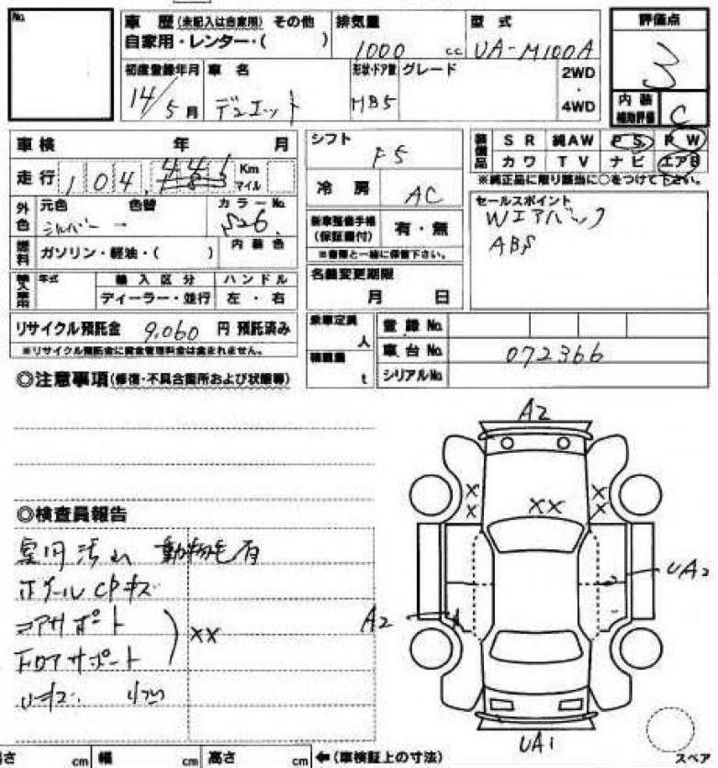 No.
車歴 (未記入は自家用) その他
自家用・レンター・( )
排気量
1000 cc
型式
UA-M100A
評価点
3
初度登録年月
14/5月
車名
デュエット
形状・ドア数
HB5
グレード
2WD
・
4WD
内装
補助評価
C
車検 年 月
走行 104, Km マイル
シフト
F5
冷房
AC
装備品
SR 純AW PS PW
カワ TV ナビ エアB
※純正品に限り該当に○をつけて下さい。
外色
元色 色替 カラーNo.
シルバー ー S26
セールスポイント
Wエアバック
ABS
新車整備手帳
(保証書付)
有・無
※書類と一緒に保管下さい。
燃料
ガソリン・軽油・( )
内装色
輸入車用
年式
輸入区分
ディーラー・並行
ハンドル
左・右
名義変更期限
月 日
リサイクル預託金 9,060 円 預託済み
※リサイクル預託金に資金管理料金は含まれません。
乗車定員
人
積載量
t
登録No.
車台No. 072366
シリアルNo.
◎注意事項(修復・不具合箇所および状態等)
◎検査員報告
室内汚れ 動物毛有
コアサポート
フロアサポート
XX
A2
X
X
XX
X
X
UA2
A2
UA1
cm 幅 cm 高さ cm ←(車検証上の寸法)
スペア